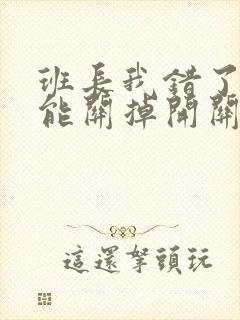 班長我錯了
能關掉開關
這還拏頭玩